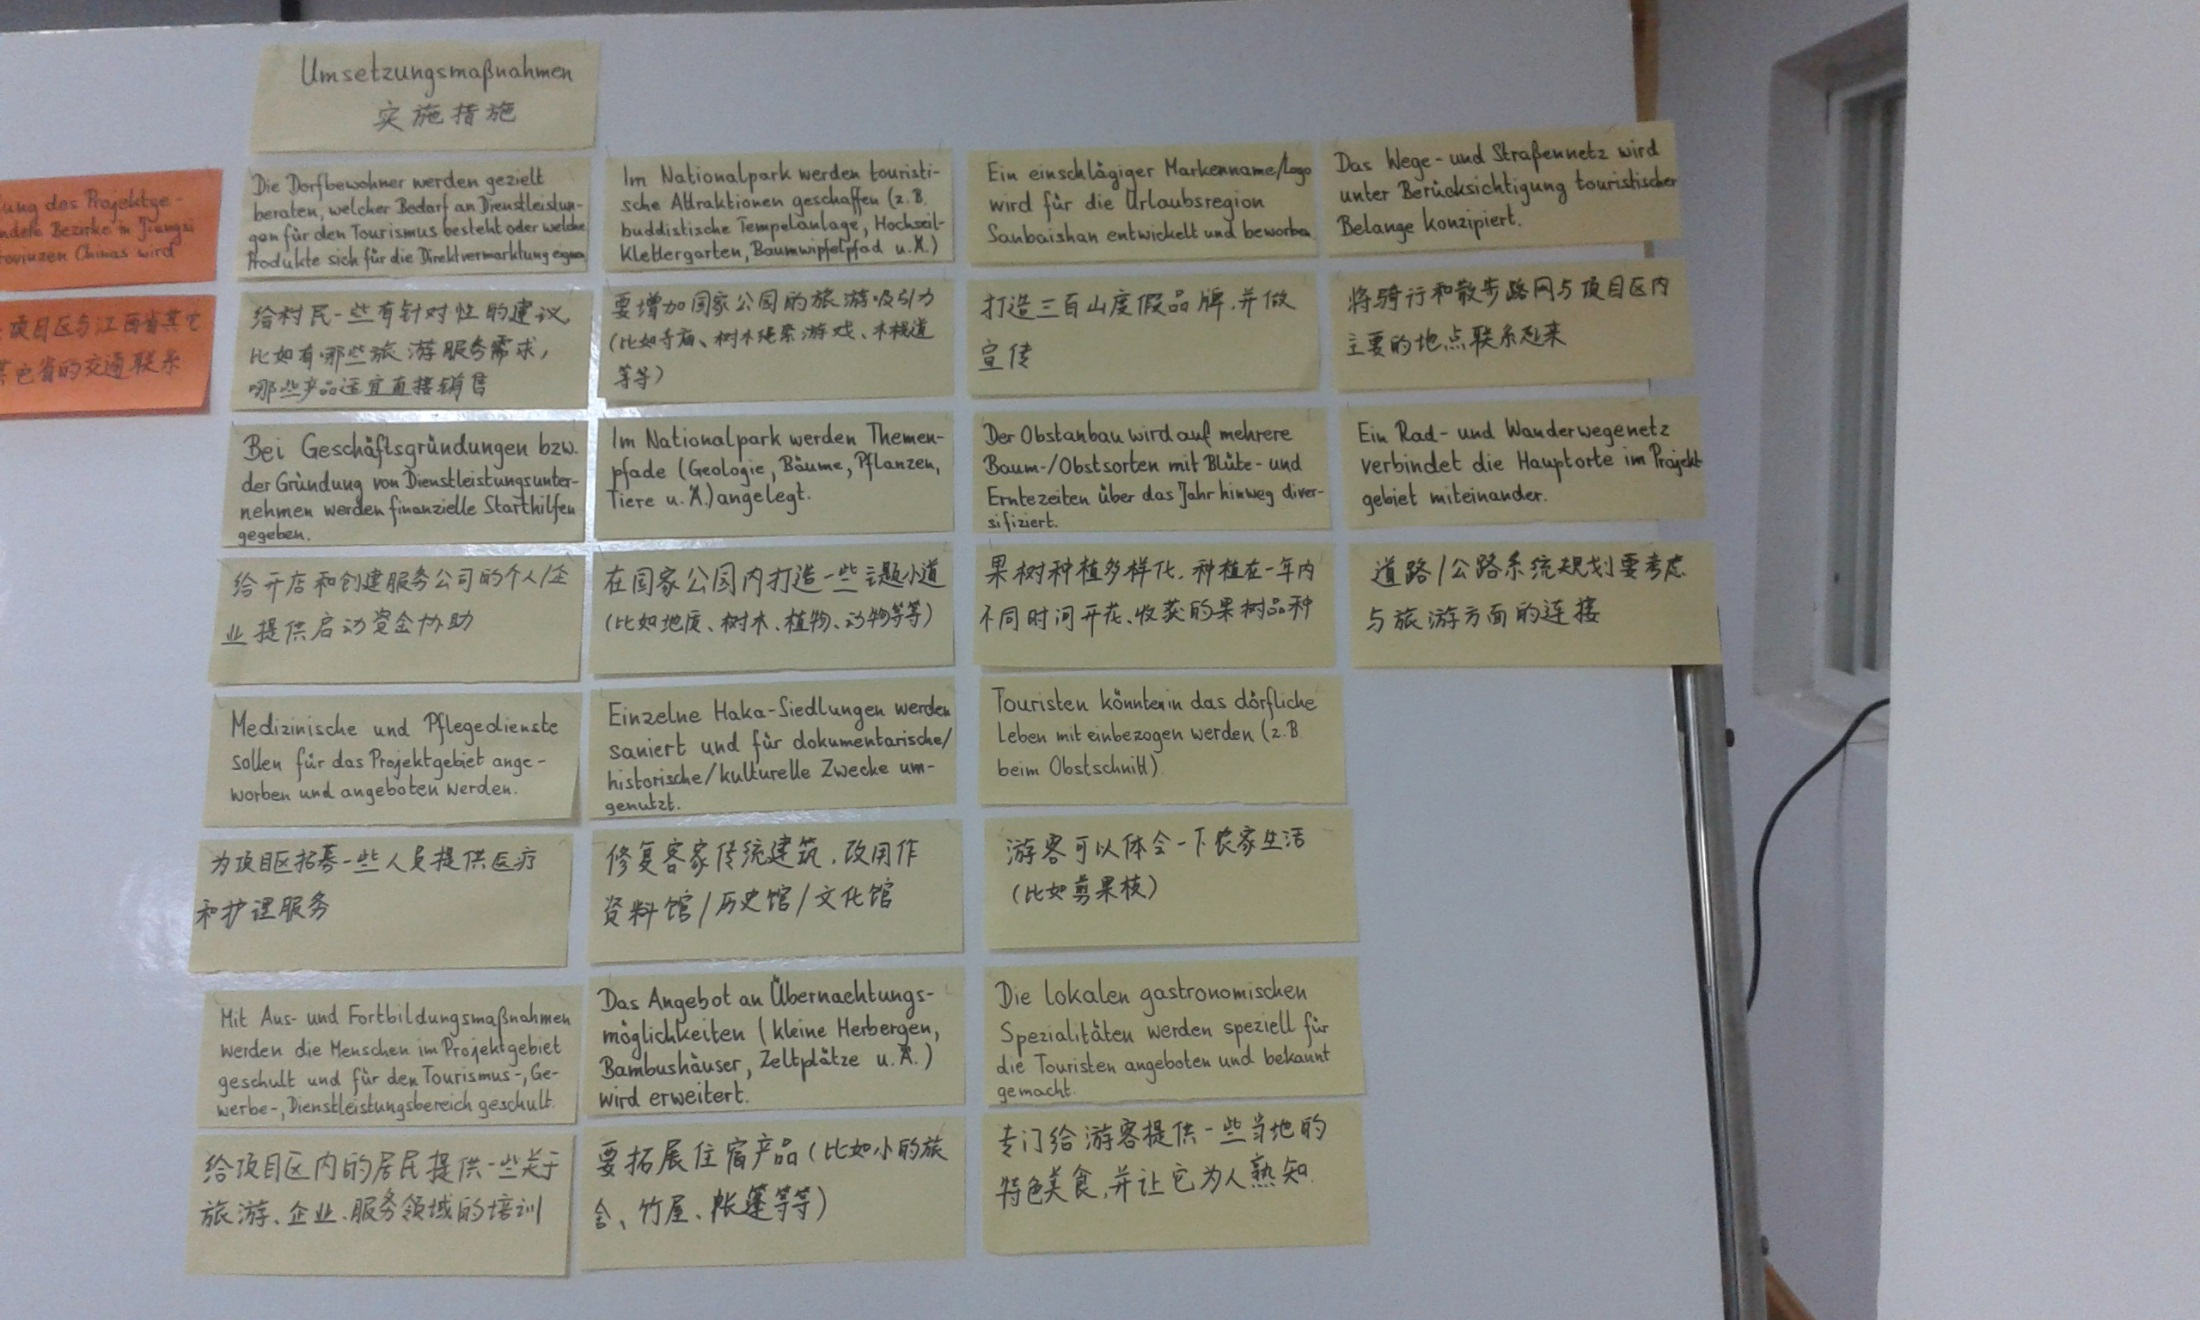 Umsetzungsmaßnahmen
实施措施
ung des Projektge-
ndere Bezirke in Jiangxi
rovinzen Chinas wird
项目区与江西省其它
其它省的交通联系
Die Dorfbewohner werden gezielt
beraten, welcher Bedarf an Dienstleistun-
gen für den Tourismus besteht oder welche
Produkte sich für die Direktvermarktung eignen
给村民一些有针对性的建议,
比如有哪些旅游服务需求,
哪些产品适宜直接销售
Bei Geschäftsgründungen bzw.
der Gründung von Dienstleistungsunter-
nehmen werden finanzielle Starthilfen
gegeben.
给开店和创建服务公司的个人/企
业提供启动资金协助
Medizinische und Pflegedienste
sollen für das Projektgebiet ange-
worben und angeboten werden.
为项目区招募一些人员提供医疗
和护理服务
Mit Aus- und Fortbildungsmaßnahmen
werden die Menschen im Projektgebiet
geschult und für den Tourismus-, Ge-
werbe-, Dienstleistungsbereich geschult.
给项目区内的居民提供一些关于
旅游、企业、服务领域的培训
Im Nationalpark werden touristi-
sche Attraktionen geschaffen (z.B.
buddistische Tempelanlage, Hochseil-
Klettergarten, Baumwipfelpfad u.Ä.)
要增加国家公园的旅游吸引力
(比如寺庙、树木绳索游戏、木栈道
等等)
Im Nationalpark werden Themen-
pfade (Geologie, Bäume, Pflanzen,
Tiere u.Ä.) angelegt.
在国家公园内打造一些主题小道
(比如地质、树木、植物、动物等等)
Einzelne Haka-Siedlungen werden
saniert und für dokumentarische/
historische/kulturelle Zwecke um-
genutzt.
修复客家传统建筑,改用作
资料馆/历史馆/文化馆
Das Angebot an Übernachtungs-
möglichkeiten (kleine Herbergen,
Bambushäuser, Zeltplätze u.Ä.)
wird erweitert.
要拓展住宿产品(比如小的旅
舍、竹屋、帐篷等等)
Ein einschlägiger Markenname/Logo
wird für die Urlaubsregion
Sanbaishan entwickelt und beworben
打造三百山度假品牌,并做
宣传
Der Obstanbau wird auf mehrere
Baum-/Obstsorten mit Blüte- und
Erntezeiten über das Jahr hinweg diver-
sifiziert.
果树种植多样化,种植在一年内
不同时间开花、收获的果树品种
Touristen könnten in das dörfliche
Leben mit einbezogen werden (z.B.
beim Obstschnitt).
游客可以体会一下农家生活
(比如剪果枝)
Die lokalen gastronomischen
Spezialitäten werden speziell für
die Touristen angeboten und bekannt
gemacht.
专门给游客提供一些当地的
特色美食,并让它为人熟知.
Das Wege- und Straßennetz wird
unter Berücksichtigung touristischer
Belange konzipiert.
将骑行和散步路网与项目区内
主要的地点联系起来
Ein Rad- und Wanderwegenetz
verbindet die Hauptorte im Projekt
gebiet miteinander.
道路/公路系统规划要考虑
与旅游方面的连接